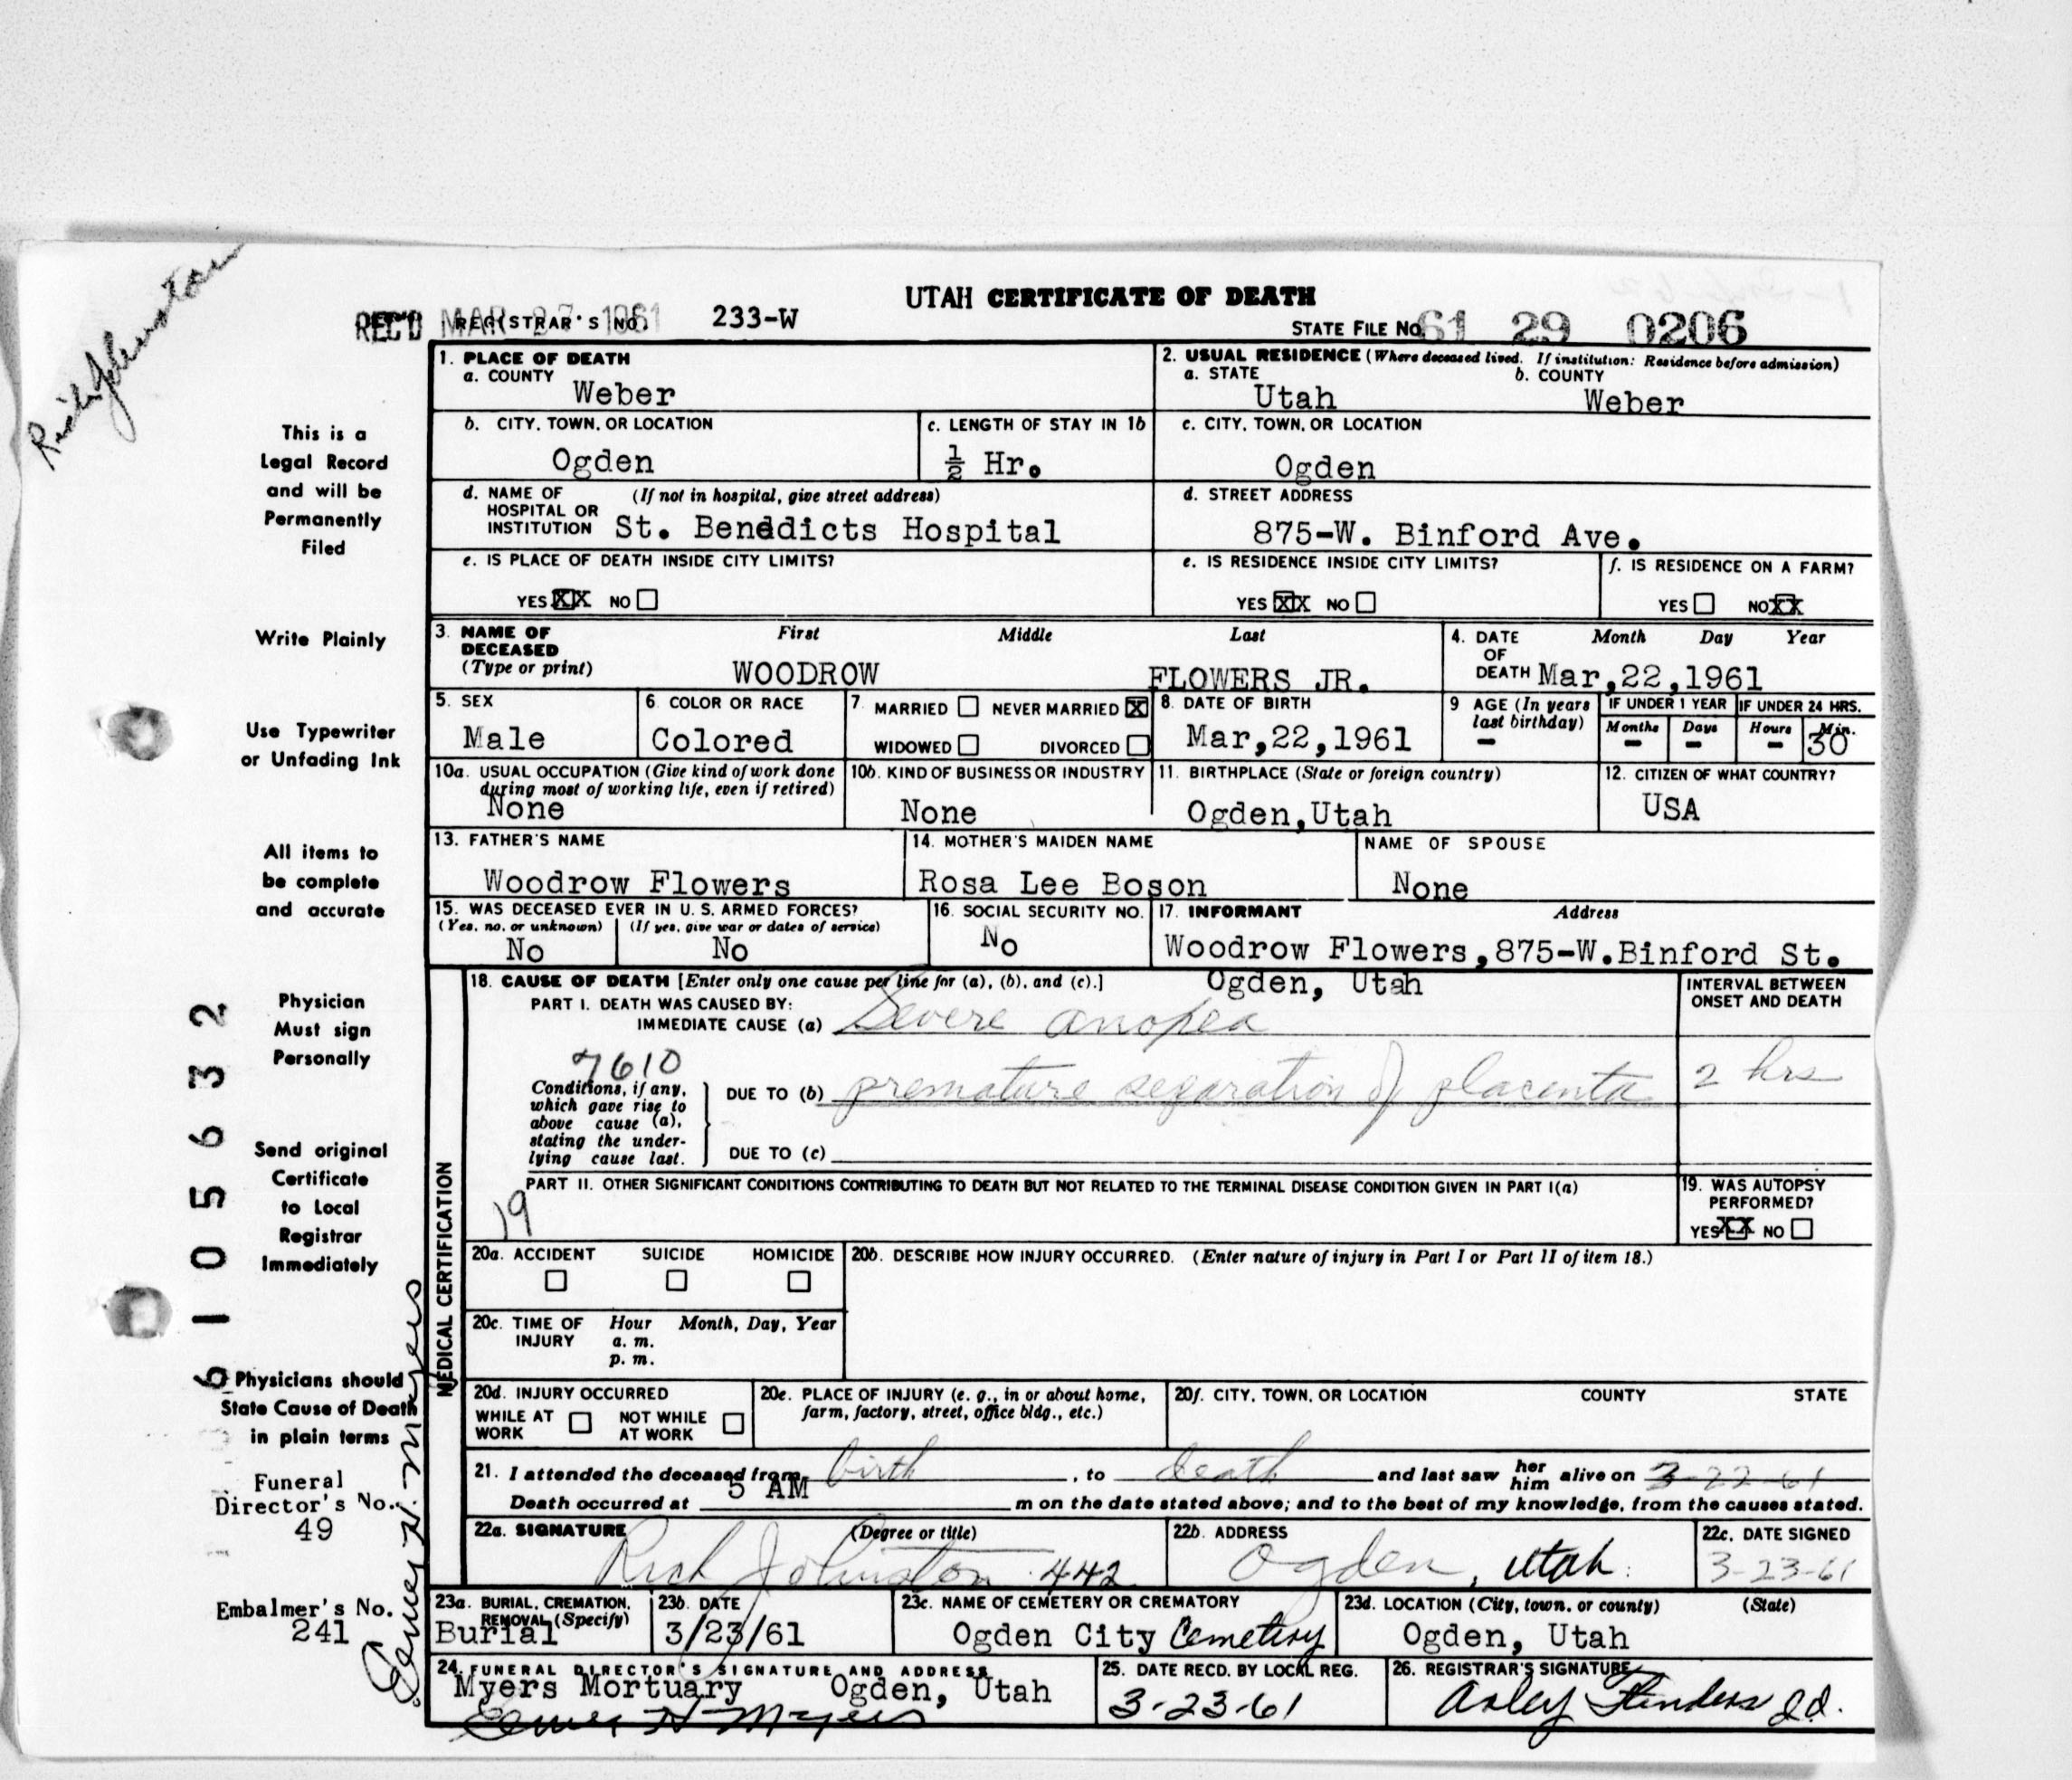 Rich Johnston
UTAH CERTIFICATE OF DEATH
REC'D MAR 27 1961 REGISTRAR'S NO. 233-W
STATE FILE NO. 61 29 0206
1. PLACE OF DEATH
a. COUNTY
Weber
2. USUAL RESIDENCE (Where deceased lived. If institution: Residence before admission)
a. STATE b. COUNTY
Utah Weber
b. CITY, TOWN, OR LOCATION
Ogden
c. LENGTH OF STAY IN 1b
½ Hr.
c. CITY, TOWN, OR LOCATION
Ogden
d. NAME OF (If not in hospital, give street address)
HOSPITAL OR
INSTITUTION St. Benedicts Hospital
d. STREET ADDRESS
875-W. Binford Ave.
e. IS PLACE OF DEATH INSIDE CITY LIMITS?
YES XX NO
e. IS RESIDENCE INSIDE CITY LIMITS?
YES XX NO
f. IS RESIDENCE ON A FARM?
YES NO XX
3. NAME OF DECEASED
(Type or print)
First Middle Last
WOODROW FLOWERS JR.
4. DATE OF DEATH
Month Day Year
Mar,22,1961
5. SEX
Male
6. COLOR OR RACE
Colored
7. MARRIED NEVER MARRIED X
WIDOWED DIVORCED
8. DATE OF BIRTH
Mar,22,1961
9 AGE (In years last birthday)
-
IF UNDER 1 YEAR IF UNDER 24 HRS.
Months Days Hours Min.
- - - 30
10a. USUAL OCCUPATION (Give kind of work done
during most of working life, even if retired)
None
10b. KIND OF BUSINESS OR INDUSTRY
None
11. BIRTHPLACE (State or foreign country)
Ogden,Utah
12. CITIZEN OF WHAT COUNTRY?
USA
13. FATHER'S NAME
Woodrow Flowers
14. MOTHER'S MAIDEN NAME
Rosa Lee Boson
NAME OF SPOUSE
None
15. WAS DECEASED EVER IN U. S. ARMED FORCES?
(Yes, no, or unknown) (If yes, give war or dates of service)
No No
16. SOCIAL SECURITY NO.
No
17. INFORMANT Address
Woodrow Flowers,875-W.Binford St.
Ogden, Utah
18. CAUSE OF DEATH [Enter only one cause per line for (a), (b), and (c).]
PART I. DEATH WAS CAUSED BY:
IMMEDIATE CAUSE (a) Severe anoxea
INTERVAL BETWEEN
ONSET AND DEATH
7610
Conditions, if any,
which gave rise to
above cause (a),
stating the under-
lying cause last.
DUE TO (b) premature separation of placenta
2 hrs
DUE TO (c)
PART II. OTHER SIGNIFICANT CONDITIONS CONTRIBUTING TO DEATH BUT NOT RELATED TO THE TERMINAL DISEASE CONDITION GIVEN IN PART I(a)
19
19. WAS AUTOPSY
PERFORMED?
YES XX NO
20a. ACCIDENT SUICIDE HOMICIDE
20b. DESCRIBE HOW INJURY OCCURRED. (Enter nature of injury in Part I or Part II of item 18.)
20c. TIME OF INJURY
Hour Month, Day, Year
a. m.
p. m.
20d. INJURY OCCURRED
WHILE AT WORK NOT WHILE AT WORK
20e. PLACE OF INJURY (e. g., in or about home,
farm, factory, street, office bldg., etc.)
20f. CITY, TOWN, OR LOCATION COUNTY STATE
21. I attended the deceased from birth, to death and last saw her him alive on 3-22-61
Death occurred at 5 AM m on the date stated above; and to the best of my knowledge, from the causes stated.
22a. SIGNATURE (Degree or title)
Rich Johnston 442
22b. ADDRESS
Ogden, Utah.
22c. DATE SIGNED
3-23-61
23a. BURIAL, CREMATION,
REMOVAL (Specify)
Burial
23b. DATE
3/23/61
23c. NAME OF CEMETERY OR CREMATORY
Ogden City Cemetery
23d. LOCATION (City, town, or county) (State)
Ogden, Utah
24. FUNERAL DIRECTOR'S SIGNATURE AND ADDRESS
Myers Mortuary Ogden, Utah
Elmer H Myers
25. DATE RECD. BY LOCAL REG.
3-23-61
26. REGISTRAR'S SIGNATURE
MEDICAL CERTIFICATION
This is a
Legal Record
and will be
Permanently
Filed
Write Plainly
Use Typewriter
or Unfading Ink
All items to
be complete
and accurate
Physician
Must sign
Personally
Send original
Certificate
to Local
Registrar
Immediately
Physicians should
State Cause of Death
in plain terms
Funeral
Director's No.
49
Embalmer's No.
241
6105632
Elmer H. Myers